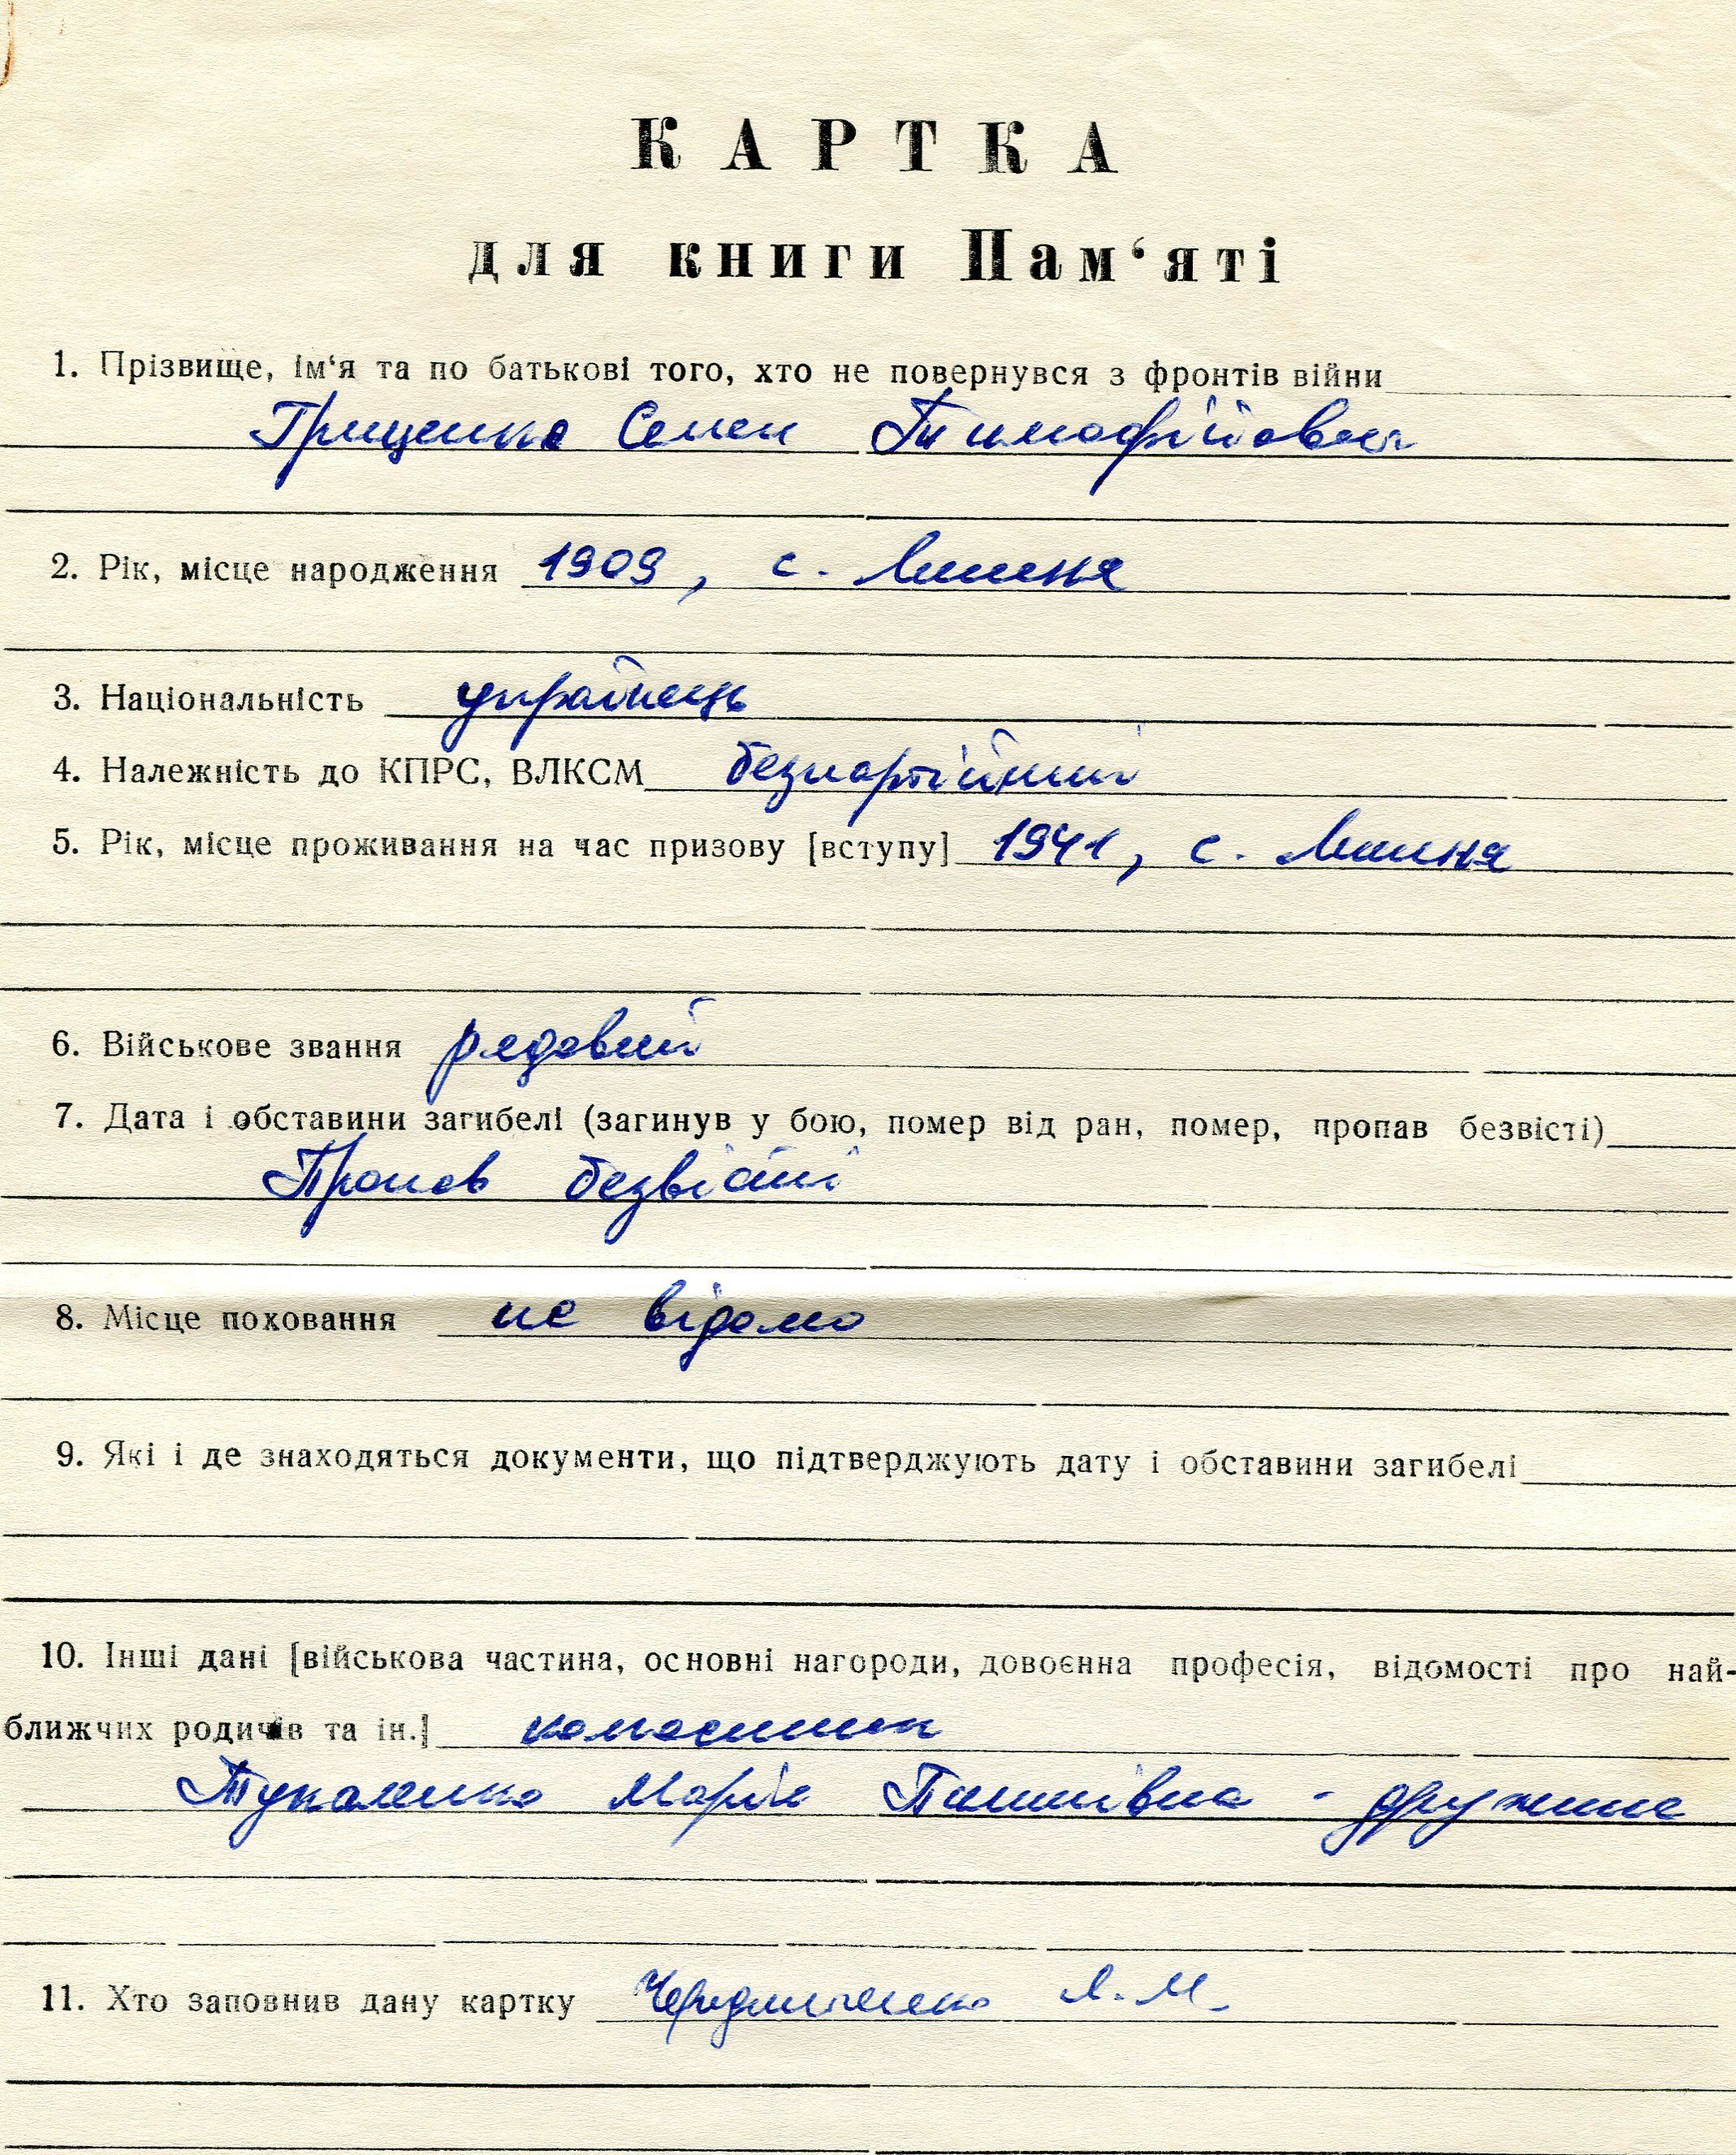 КАРТКА
для книги Пам‘яті
1. Прізвище, ім‘я та по батькові того, хто не повернувся з фронтів війни
Грищенко Семен Тимофійович
2. Рік, місце народження 1909, с.
3. Національність українець
4. Належність до КПРС, ВЛКСМ безпартійний
5. Рік, місце проживання на час призову [вступу] 1941, с.
6. Військове звання рядовий
7. Дата і обставини загибелі (загинув у бою, помер від ран, помер, пропав безвісті)
Пропав безвісті
8. Місце поховання не відомо
9. Які і де знаходяться документи, що підтверджують дату і обставини загибелі
10. Інші дані [військова частина, основні нагороди, довоєнна професія, відомості про най-
ближчих родичів та ін.] колгоспник
Тукаленко Марія Пилипівна - дружина
11. Хто заповнив дану картку Чередниченко Л. М.